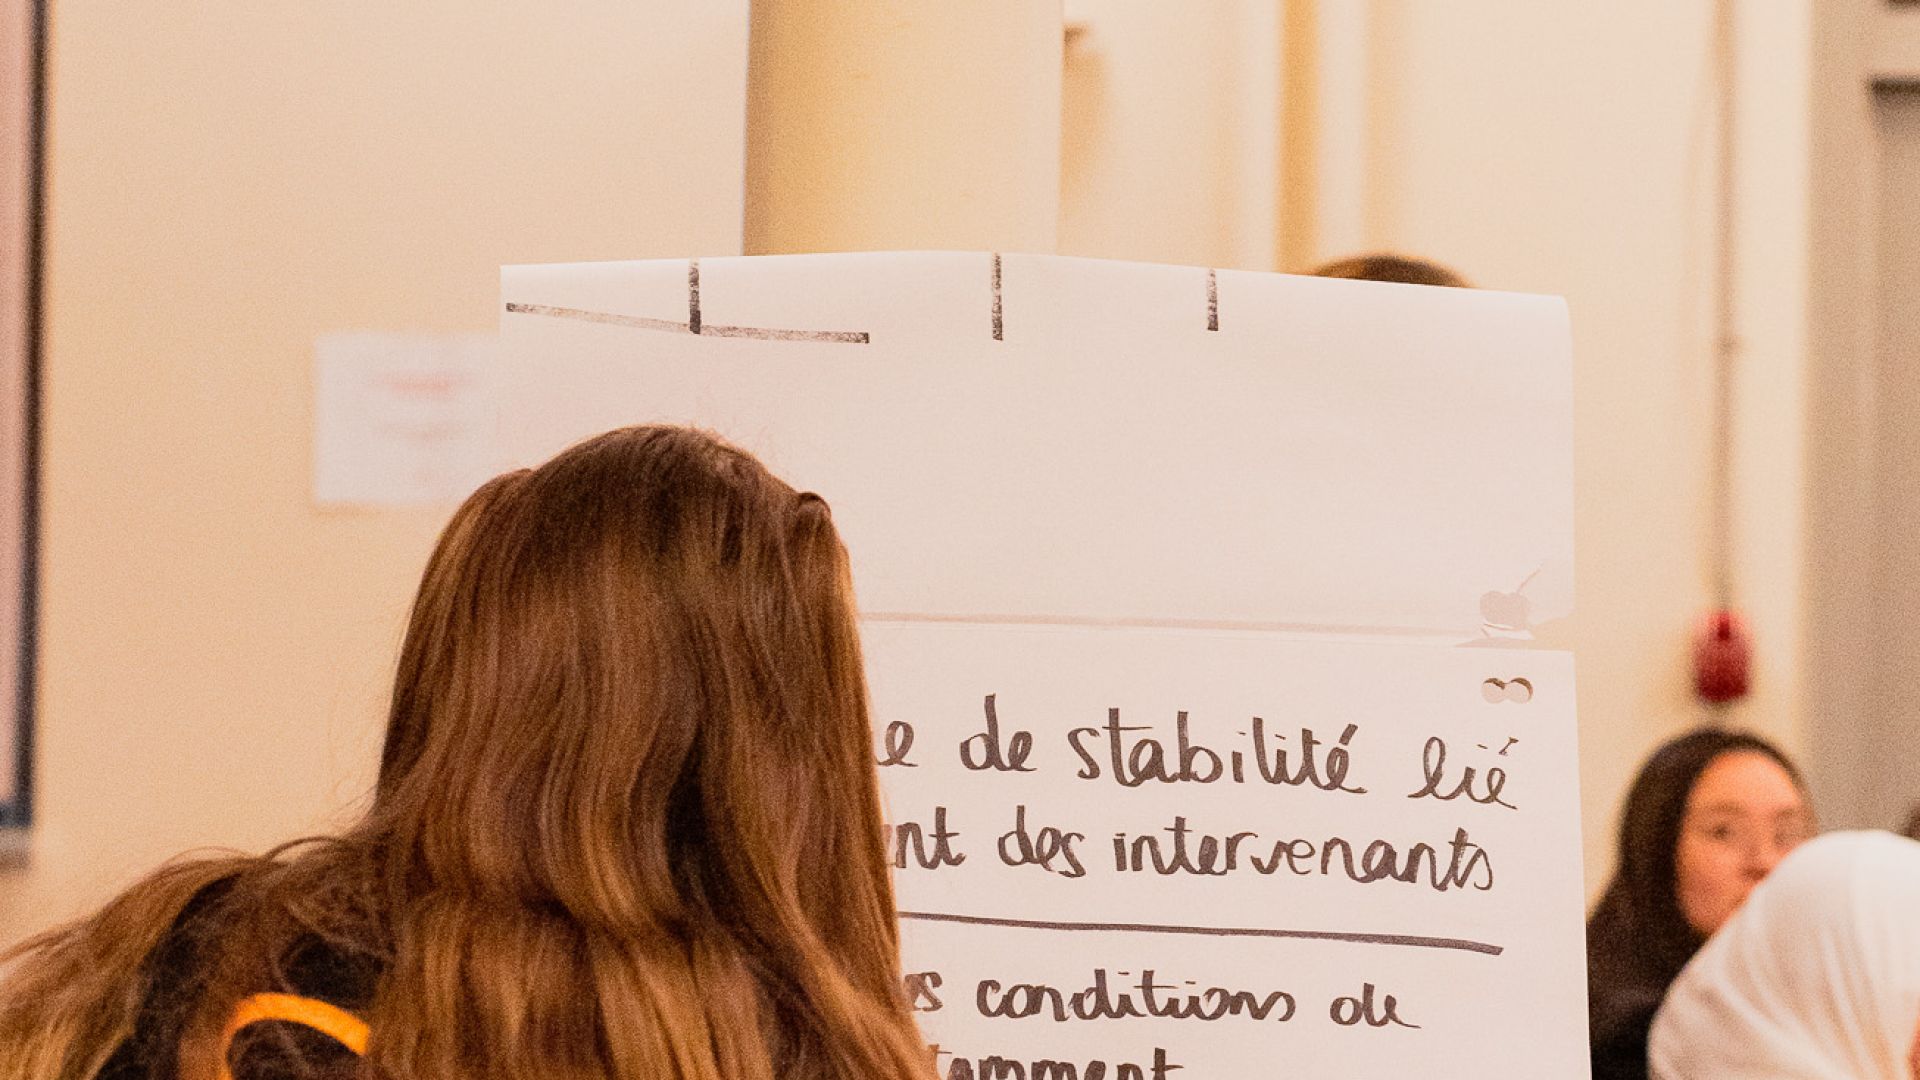 e de stabilité lié
nt des intervenants
s conditions de
tamment